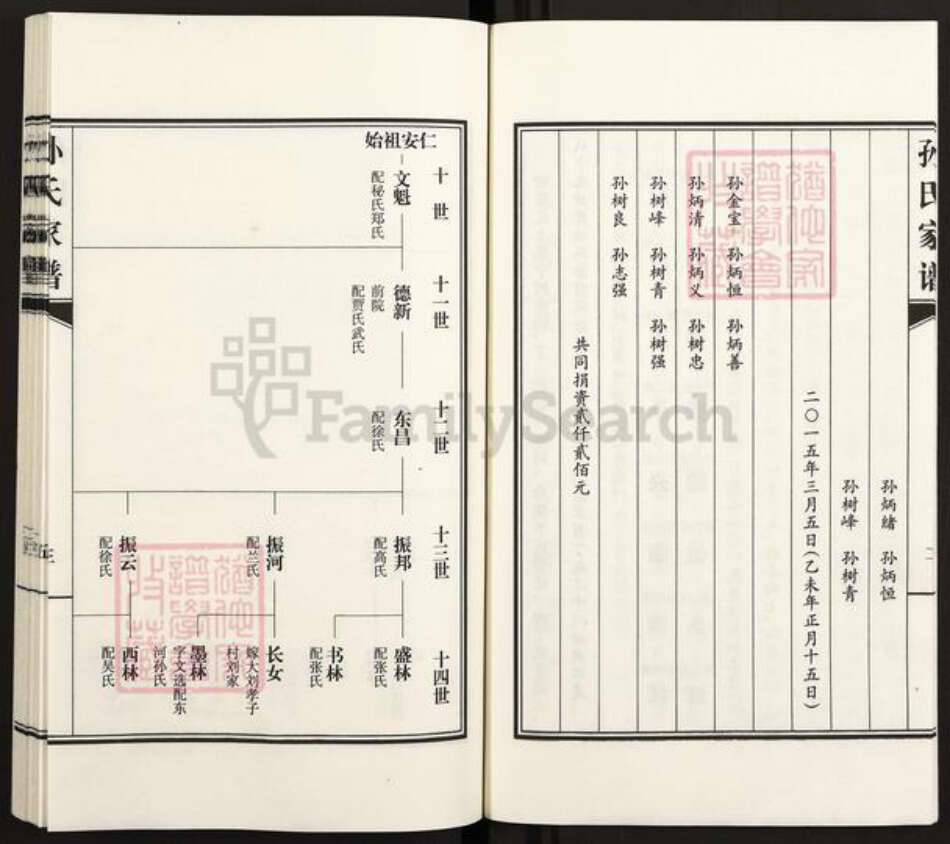 孙氏家谱
孙炳绪 孙炳恒
孙树峰 孙树青
二〇一五年三月五日(乙未年正月十五日)
孙金宝 孙炳恒 孙炳善
孙炳清 孙炳义 孙树忠
孙树峰 孙树青 孙树强
孙树良 孙志强
共同捐资贰仟贰佰元
始祖安仁
十世
文魁
配秘氏郑氏
十一世
德新
前院
配贾氏武氏
十二世
东昌
配徐氏
十三世
振邦
配高氏
振河
配兰氏
振云
配徐氏
十四世
盛林
配张氏
书林
配张氏
长女
嫁大刘孝子
村刘家
墨林
字文选配东
河孙氏
西林
配吴氏
孙氏家谱
FamilySearch